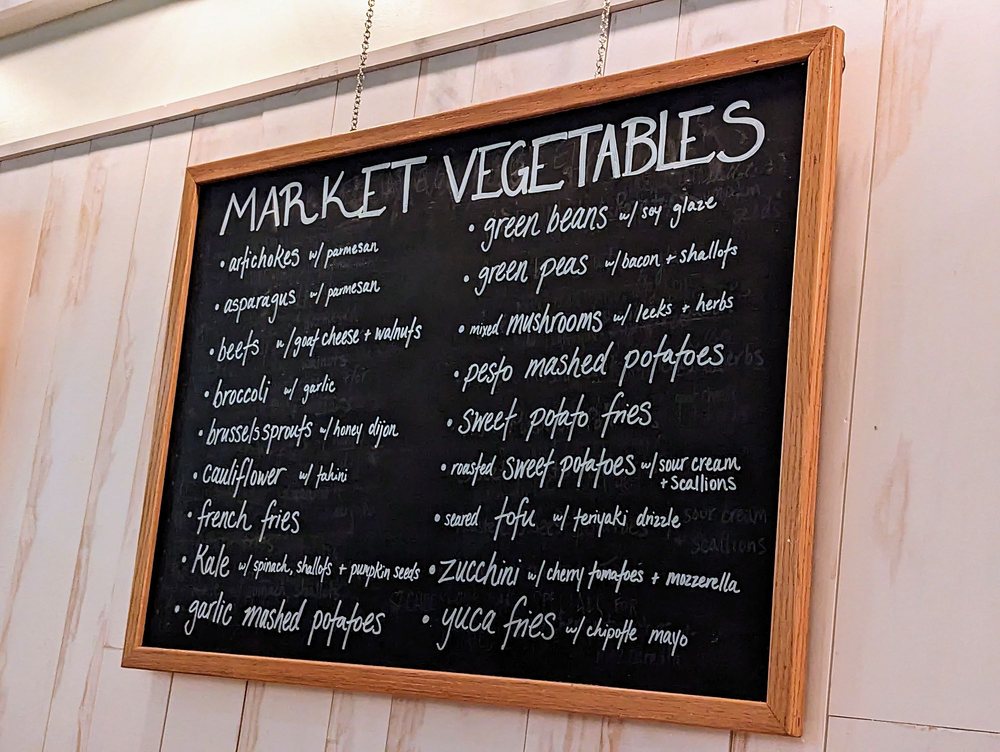 MARKET VEGETABLES
• artichokes w/ parmesan
• asparagus w/ parmesan
• beets w/ goat cheese + walnuts
• broccoli w/ garlic
• brussels sprouts w/ honey dijon
• cauliflower w/ tahini
• french fries
• Kale w/ spinach, shallots + pumpkin seeds
• garlic mashed potatoes
• green beans w/ soy glaze
• green peas w/ bacon + shallots
• mixed mushrooms w/ leeks + herbs
• pesto mashed potatoes
• sweet potato fries
• roasted sweet potatoes w/ sour cream
+ scallions
• seared tofu w/ teriyaki drizzle
• zucchini w/ cherry tomatoes + mozzerella
• yuca fries w/ chipotle mayo